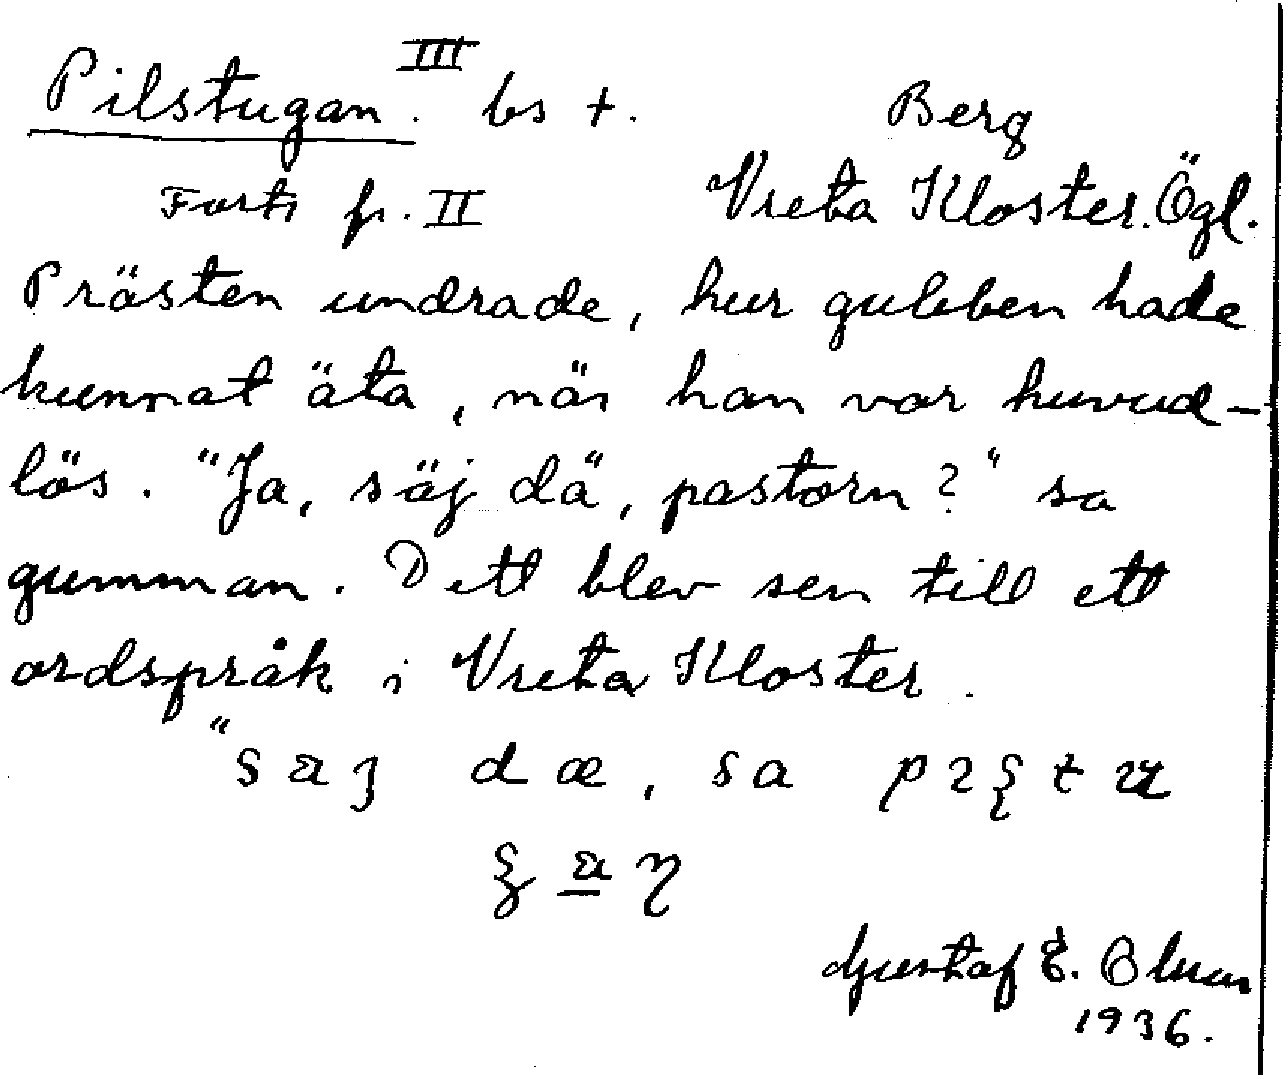 III
Pilstugan. bs +. Berg
Forts fr. II Vreta Kloster. Ögl.
Prästen undrade, hur gubben hade
kunnat äta, när han var huvud-
lös. "Ja, säj dä, pastorn?" sa
gumman. Dett blev sen till ett
ordspråk i Vreta Kloster.
Gustaf E.
1936.